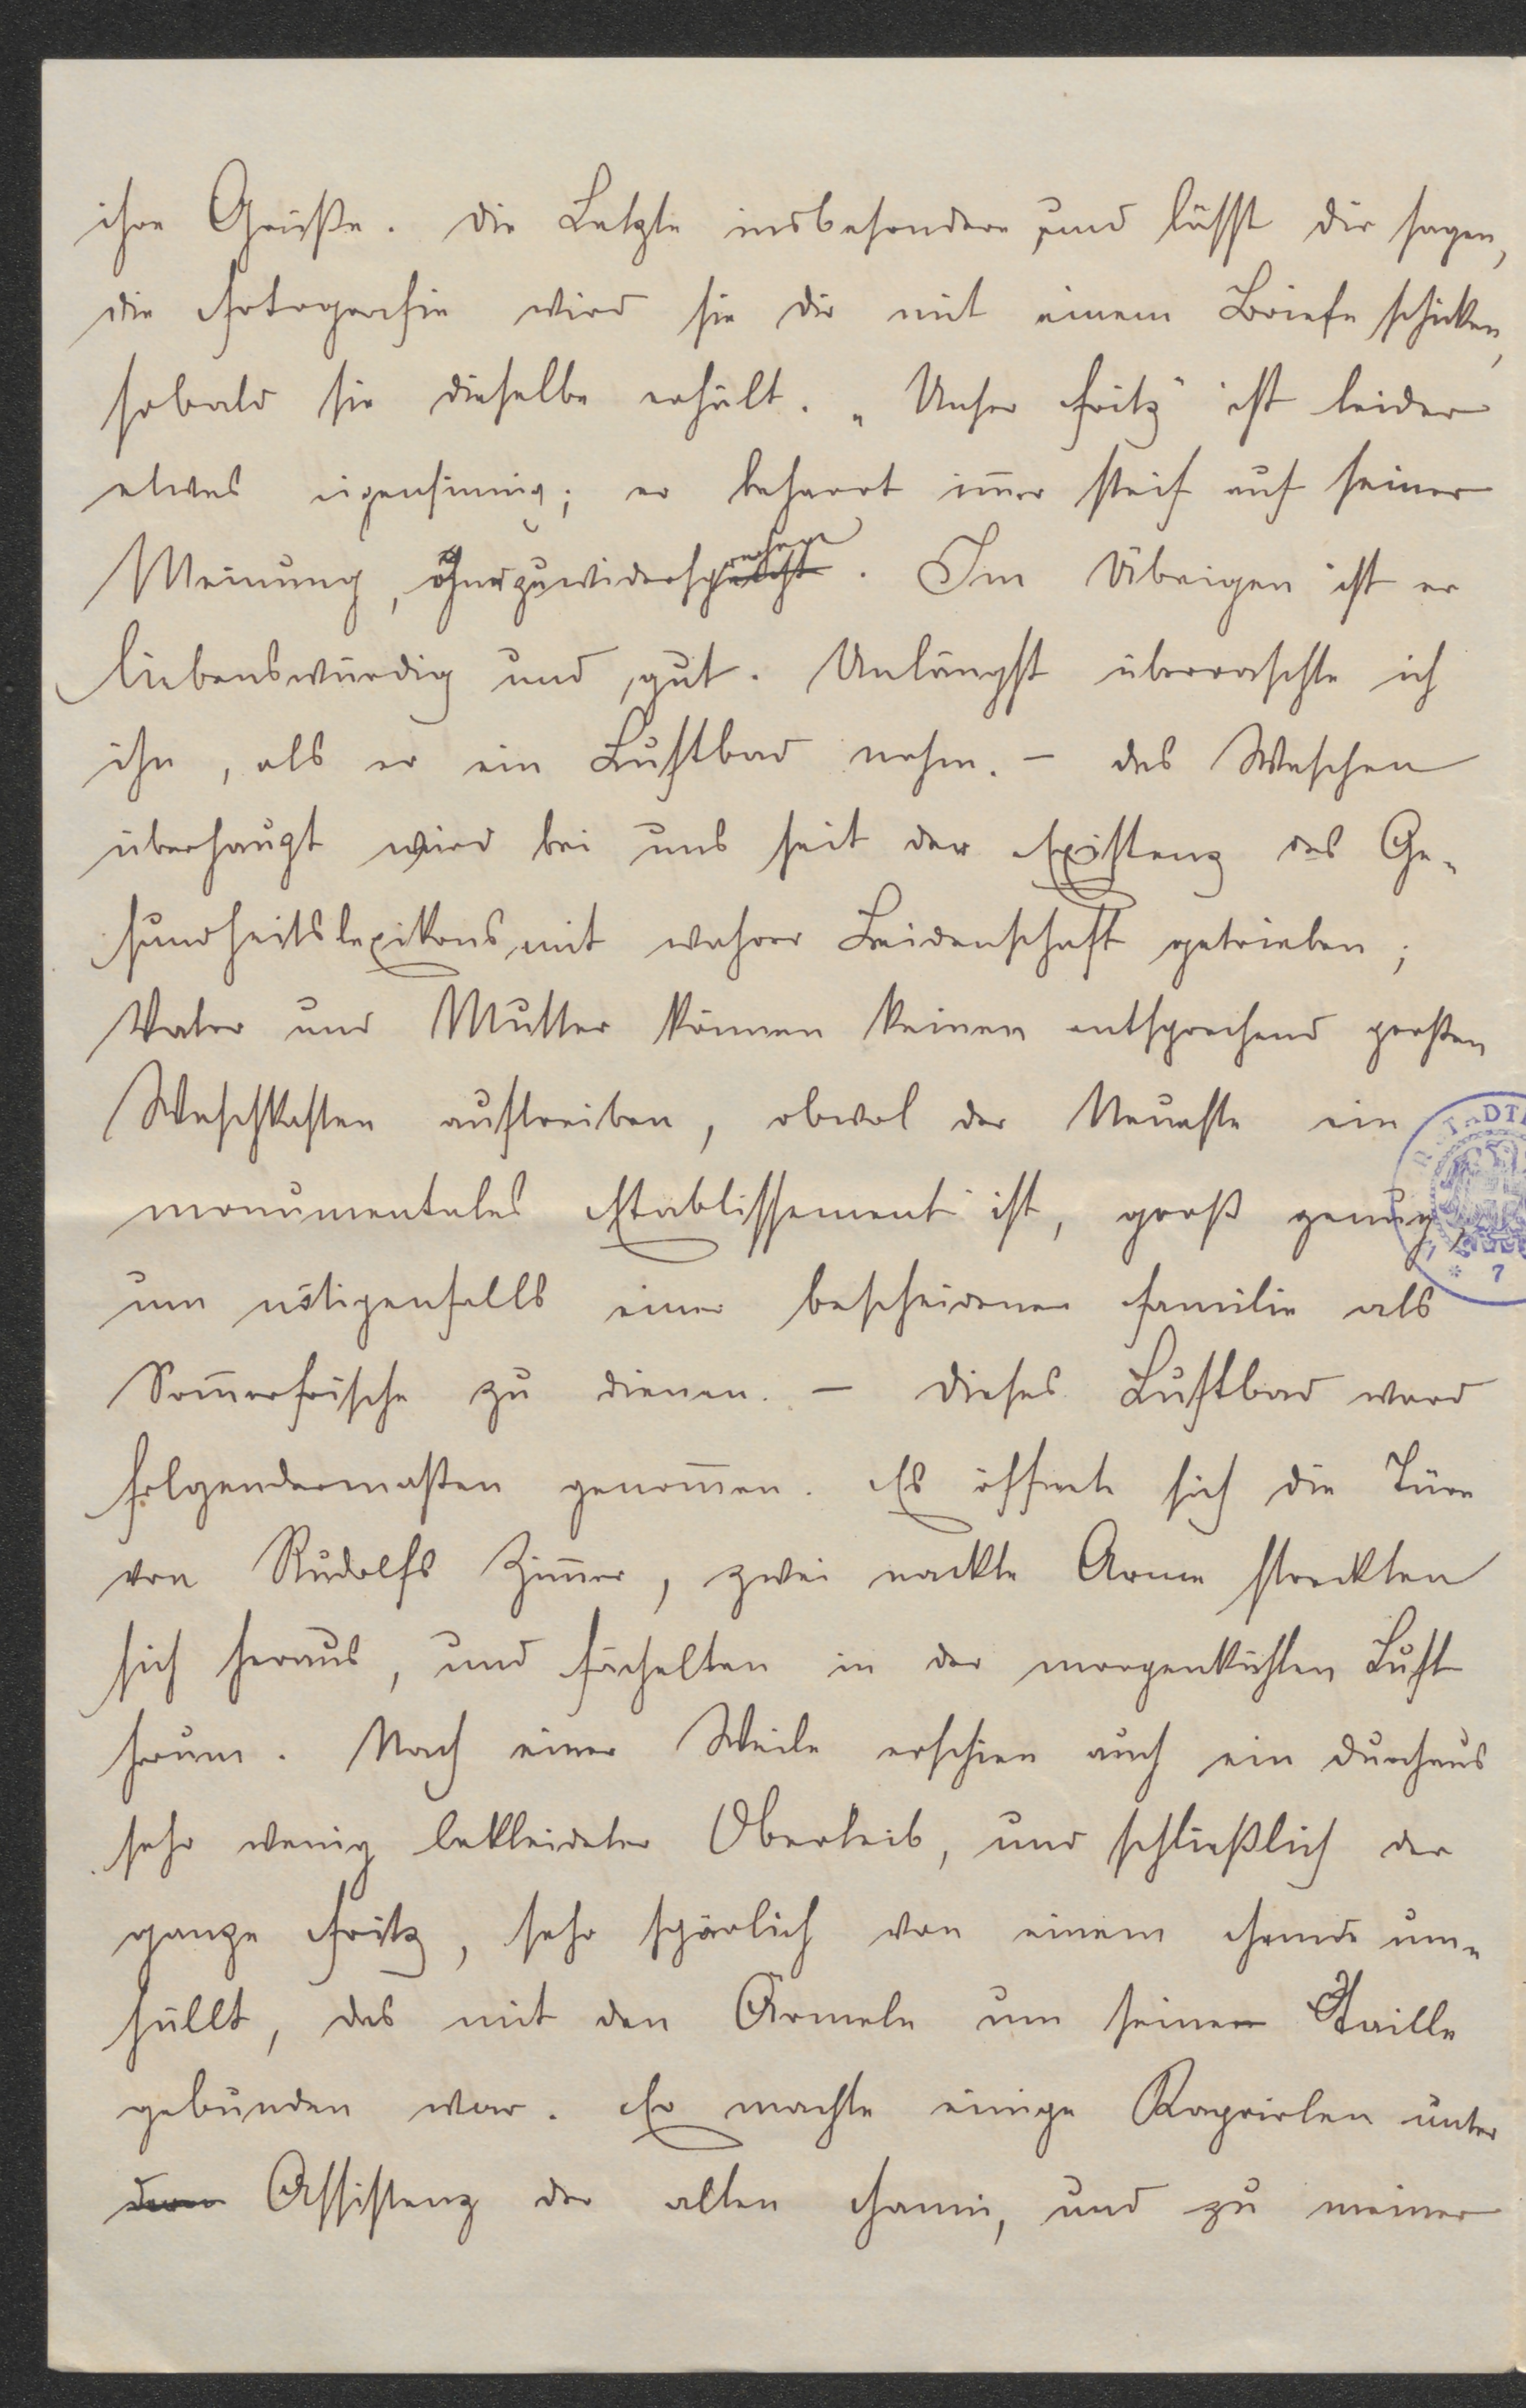 ihre Grüße. Die Letzte insbesondere und lässt dir sagen,
die Fotografie wird sie dir mit einem Briefe schicken,
sobald sie dieselbe erhält. „Unser Fritz" ist leider
etwas eigensinnig; er beharrt im̅er steif auf seiner
Meinung, ohne zu widersprechen. Im Übrigen ist er
liebenswürdig und gut. Unlängst überraschte ich
ihn, als er ein Luftbad nahm. – das Waschen
überhaupt wird bei uns seit der Existenz des Ge-
sundheitslexikons mit wahrer Leidenschaft getrieben;
Vater und Mutter können keinen entsprechend großen
Waschkasten auftreiben, obwol der Neueste ein
monumentales Etablissement ist, groß genug,
um nötigenfalls einer bescheidenen Familie als
Som̅erfrische zu dienen. – Dieses Luftbad ward
folgendermaßen genom̅en. Es öffnete sich die Türe
von Rudolfs Zim̅er, zwei nackte Arme streckten
sich heraus, und fächelten in der morgenkühlen Luft
herum. Nach einer Weile erschien auch ein durchaus
sehr wenig bekleideter Oberleib, und schließlich der
ganze Fritz, sehr spärlich von einem Hemde um-
hüllt, das mit den Ärmeln um seine Taille
gebunden war. Er machte einige Kapriolen unter
Assistenz der alten Hanni, und zu meiner
STADT
7